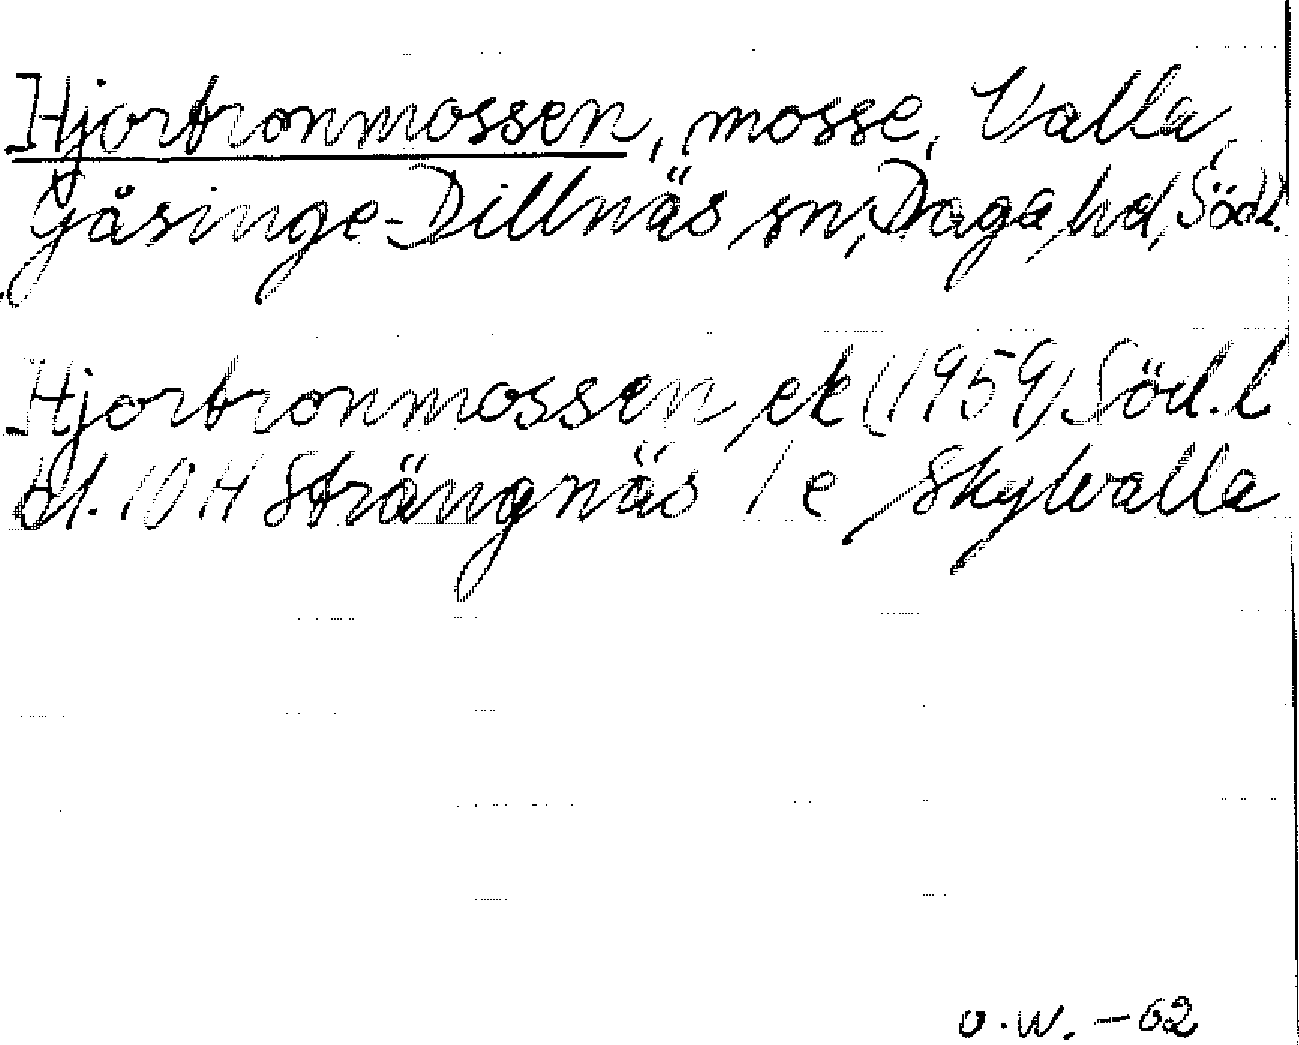 Hjortronmossen, mosse, Valla,
Gåsinge-Dillnäs sn, Daga hd, Södl.
Hjortronmossen ek (1959) Söd.l
bl. 10 H Strängnäs 1 e Skylvalla
O.W. -62